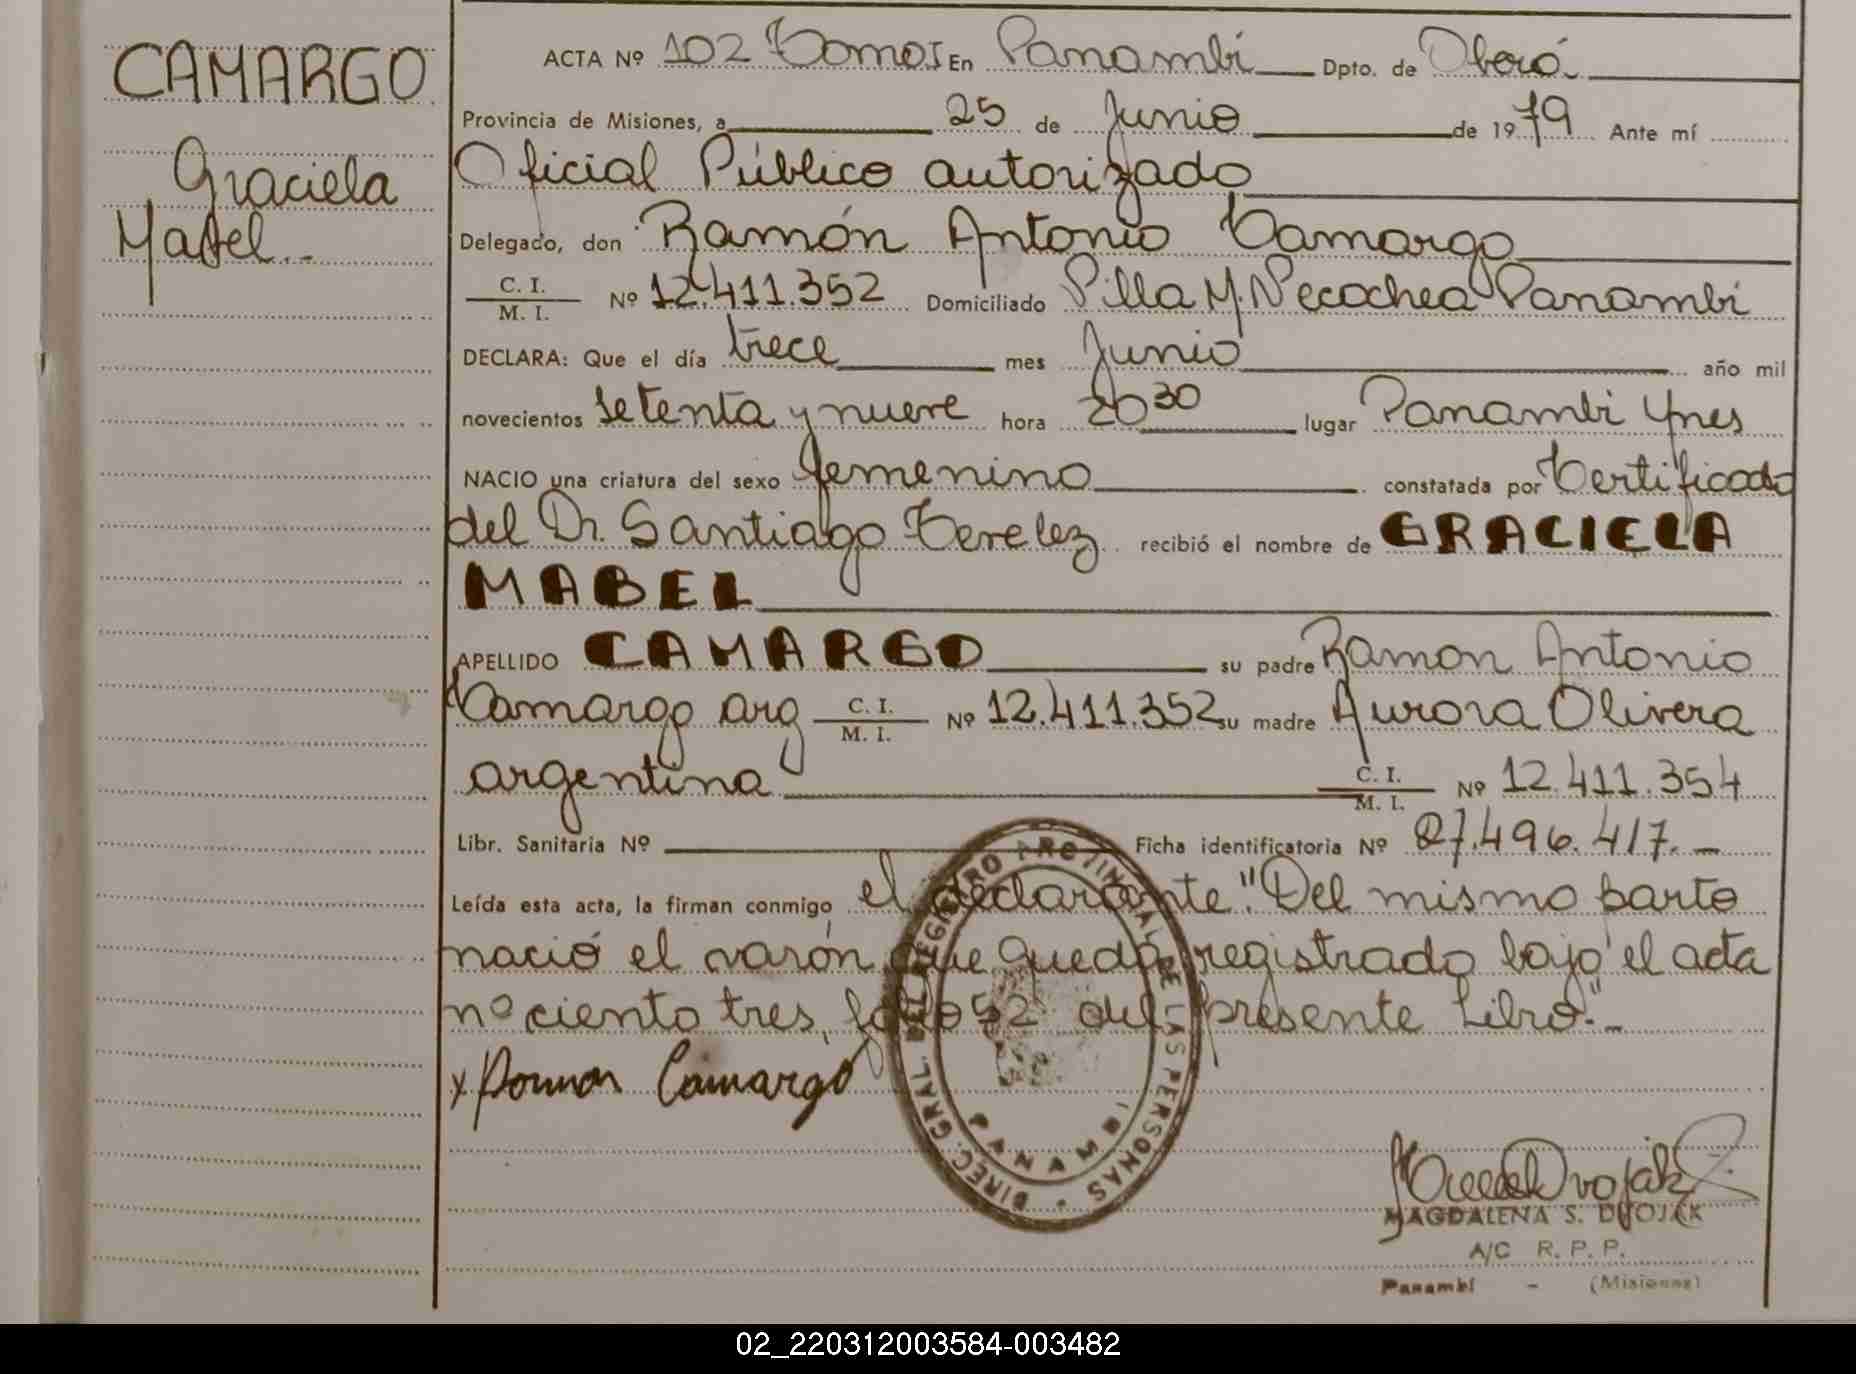 CAMARGO
Graciela
Mabel..
ACTA Nº 102 Tomo I En Panambí Dpto. de Oberá
Provincia de Misiones, a 25 de Junio de 1979 Ante mí
Oficial Público autorizado
Delegado, don Ramón Antonio Camargo
C. I. / M. I. Nº 12.411.352 Domiciliado Villa M. Necochea Panambí
DECLARA: Que el día trece mes Junio año mil
novecientos setenta y nueve hora 20 30 lugar Panambí Mnes
NACIO una criatura del sexo femenino constatada por Certificado
del Dr. Santiago recibió el nombre de GRACIELA
MABEL
APELLIDO CAMARGO su padre Ramon Antonio
Camargo arg C. I. / M. I. Nº 12.411.352 su madre Aurora Olivera
argentina C. I. / M. I. Nº 12.411.354
Libr. Sanitaria Nº Ficha identificatoria Nº 27.496.417.-
Leída esta acta, la firman conmigo el declarante. "Del mismo parto
nació el varón que queda registrado bajo el acta
nº ciento tres, folio 52 del presente Libro."-
x Ramon Camargo
DIREC. GRAL. DEL REGISTRO PROVINCIAL DE LAS PERSONAS
PANAMBI
MAGDALENA S. DVOJAK
A/C R. P. P.
Panambí - (Misiones)
02_220312003584-003482